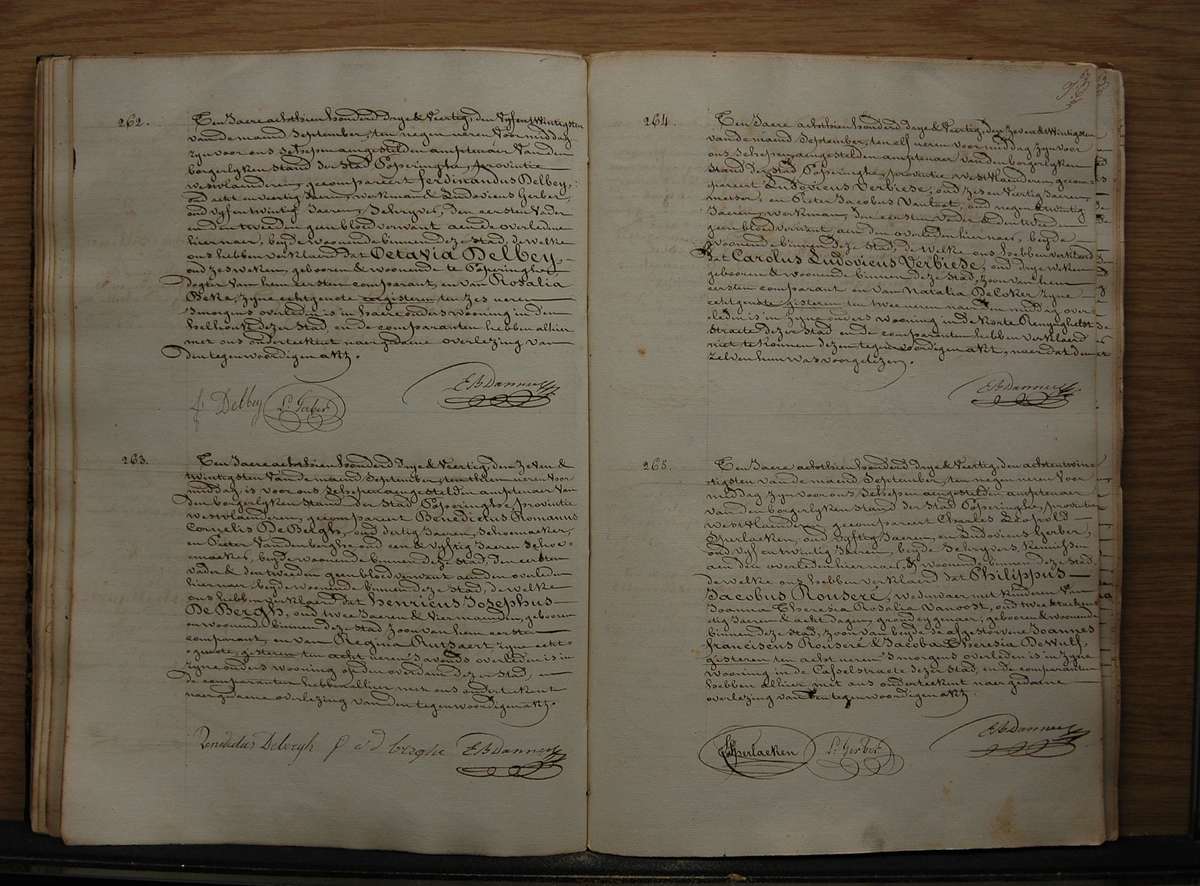 262.
Ten Jaere achthien honderd drye & Veertig, den Vyf en twintigsten
van de maend September, ten negen ueren voor middag
zyn voor ons Schepen aengestelden amptenaer van den
borgerlyken stand der stad Poperinghe, provintie
westvlaenderen, gecompareert Ferdinandus Delbey,
oud acht en veertig Jaeren, werkman & Ludovicus Gerber,
oud Vyf en twintig Jaeren, Schryver, den eersten Vader
en den tweeden geen bloedverwant aen de overledene
hiernaer, beyde woonende binnen deze stad, de welke
ons hebben verklaerd dat Octavia Delbey,
oud zes weken, geboren & woonende te Poperinghe
dogter van hem eersten comparant, en van Rosalia
Beke, zyne echtgenote, eergisteren, ten zes ueren
smorgens overleden is in haere ouders wooning in den
hollen dezer stad, en de comparanten hebben alhier
met ons onderteekent naer gedane overlezing van
den tegenwoordigen akt.
f. Delbey L. Gerber E. B. Danneel
263.
Ten Jaere achthien honderd drye & Veertig, den Zeven &
twintigsten van de maend September, ten thien ueren voor
middag is voor ons Schepen aengestelden amptenaer van
den borgerlyken stand der stad Poperinghe provintie
westvlaenderen, gecompareert Benedictus Romanus
Cornelis De Bergh, oud dertig Jaeren, Schoenmaeker,
en Pieter Vandenberghe oud een & vyftig Jaeren Schoe-
maeker, beyde woonende binnen deze stad, den eersten
vader & den tweeden geen bloedverwant aen den overleden
hiernaer, beyde woonende binnen deze stad, de welke
ons hebben verklaerd dat Henricus Josephus
De Bergh, oud twee Jaeren & Vier maenden, geboren
en woonende binnen deze stad zoon van hem eersten
comparant, en van Regina Rutsaert, zyne echt-
genote, gisteren ten acht ueren s'avonds overleden is in
zyne ouders wooning op den overdam dezer stad,
de comparanten hebben alhier met ons onderteekent
naer gedane overlezing van den tegenwoordigen akt.
Benedictus Debergh P v d berghe E. B. Danneel
264.
Ten Jaere achthien honderd drye & Veertig, den Zes en twintigsten
van de maend September, ten elf ueren voor middag zyn voor
ons Schepen aengestelden amptenaer van den borgerlyken
stand der stad Poperinghe, provintie westvlaenderen gecom-
pareert Ludovicus Verbiese, oud zes en Veertig Jaeren,
metser, en Pieter Jacobus Vantoot, oud negen & twintig
Jaeren, werkman, den eersten Vader & den tweeden
geen bloedverwant aen den overleden hiernaer, beyde
woonende binnen deze stad, de welke ons hebben verklaerd
dat Carolus Ludovicus Verbiese, oud drye weken
geboren & woonende binnen deze stad, zoon van hem
eersten comparant en van Natalia DeCoker zyne
echtgenote gisteren ten twee ueren naer middag over-
leden is in zyne ouders wooning in de Korte Reninghelst
straete dezer stad en de comparanten hebben verklaerd
niet te konnen dezen tegenwoordigen akt, naer dat den
zelven hun was voorgelezen.
E. B. Danneel
265.
Ten Jaere achthien honderd drye & Veertig, den achtentwin-
tigsten van de maend September, ten negen ueren voor
middag zyn voor ons Schepen aengestelden amptenaer
van den borgerlyken stand der stad Poperinghe, provintie
westvlaenderen, gecompareert Charles Leopold
Sperlaeken, oud vyftig Jaeren, en Ludovicus Gerber,
oud Vyf en twintig Jaeren, beyde Schryvers, Kennissen
aen den overleden hiernaer, & woonende binnen deze stad
de welke ons hebben verklaerd dat Philippus
Jacobus Rouseré, weduwaer met kinderen van
Joanna Theresia Rosalia Vanoost, oud twee & tachen-
tig Jaeren & acht dagen, grondeygenaer, geboren & woonende
binnen deze stad, zoon van beyde de afgestorvene Joannes
Franciscus Rouseré & Jacoba Theresia De Wulf,
gisteren ten acht ueren smorgens overleden is in zyne
wooning in de Casselstraete dezer stad, en de comparanten
hebben alhier met ons onderteekent naer gedane
overlezing van den tegenwoordigen akt.
Sperlaeken L. Gerber E. B. Danneel